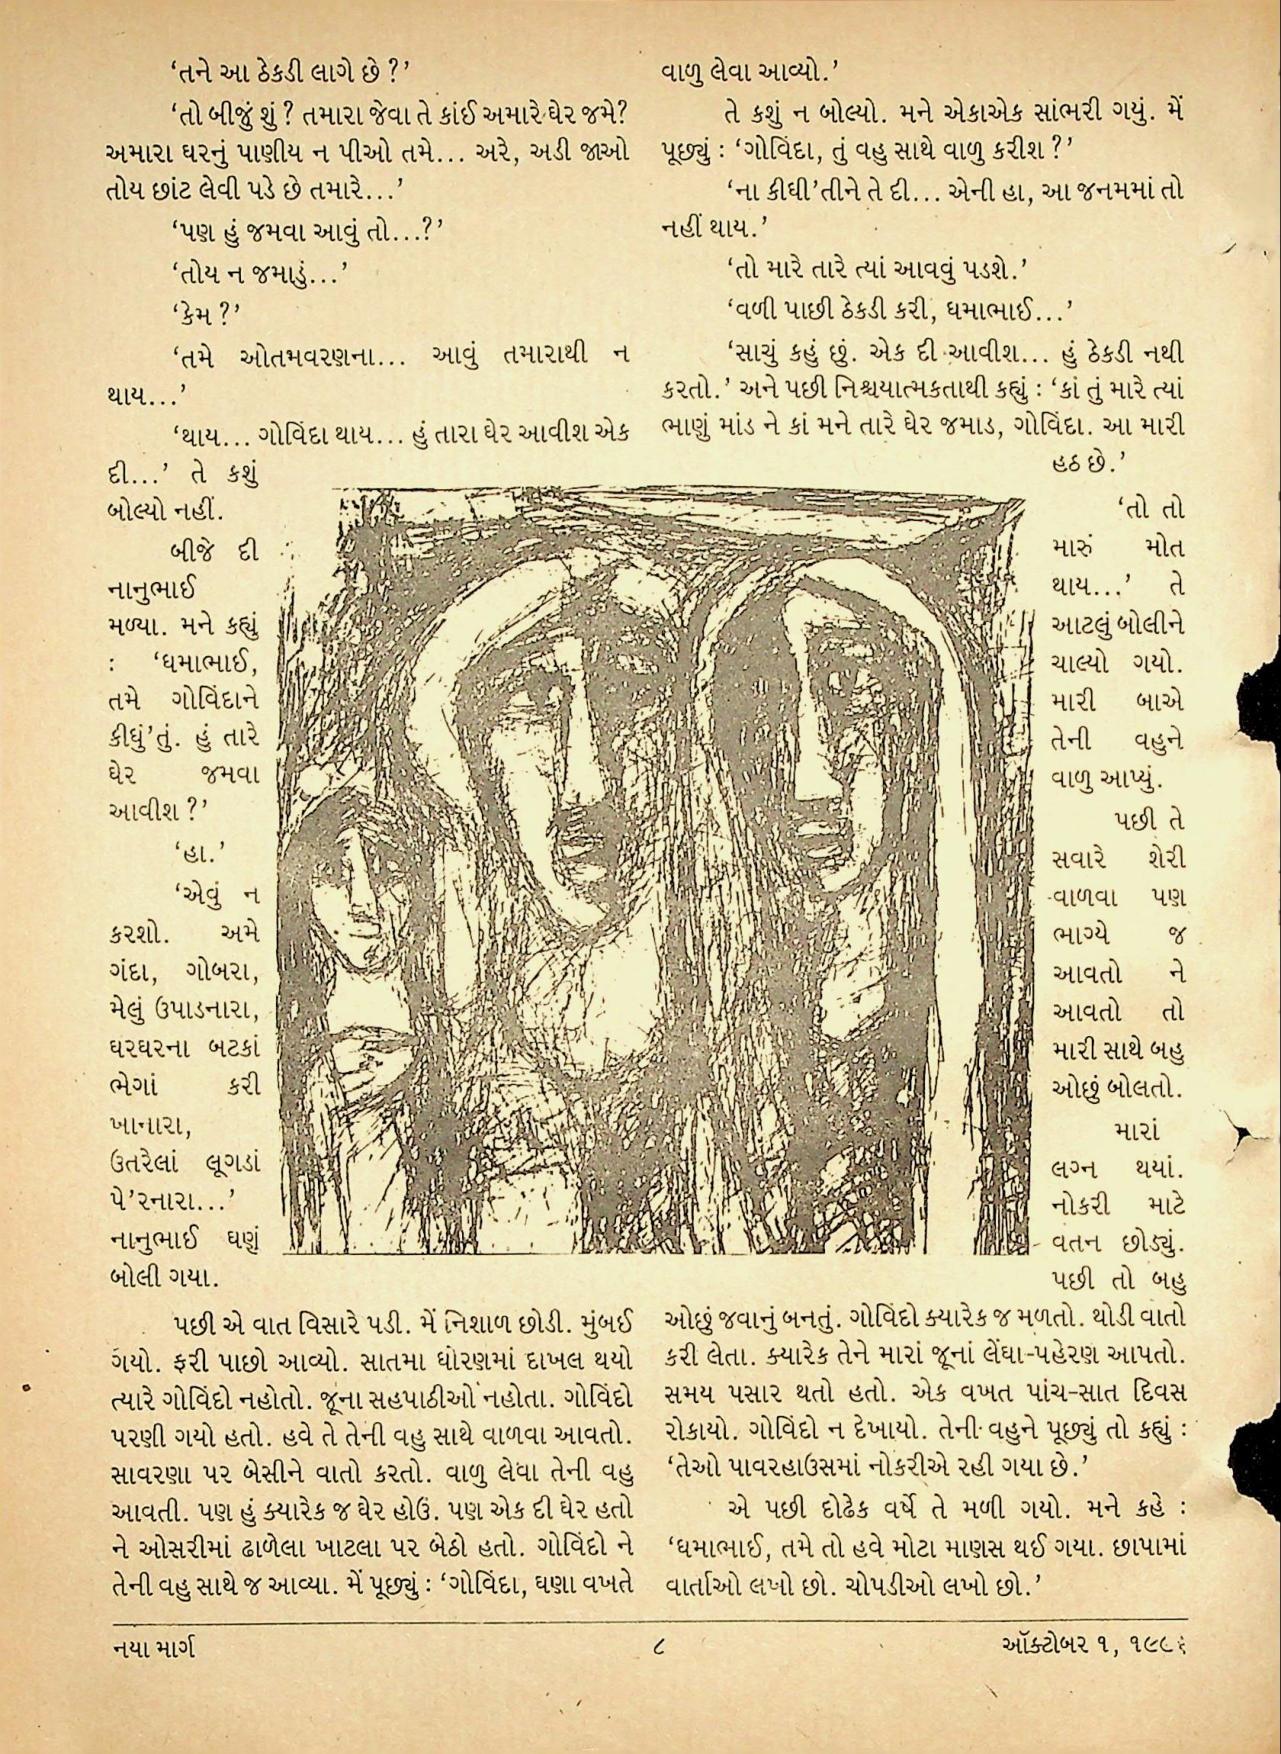 ‘તને આ ઠેકડી લાગે છે ?’
‘તો બીજું શું ? તમારા જેવા તે કાંઈ અમારે ઘેર જમે?
અમારા ઘરનું પાણીય ન પીઓ તમે... અરે, અડી જાઓ
તોય છાંટ લેવી પડે છે તમારે...’
‘પણ હું જમવા આવું તો...?’
‘તોય ન જમાડું...’
‘કેમ ?’
‘તમે ઓતમવરણના... આવું તમારાથી ન
થાય...’
‘થાય... ગોવિંદા થાય... હું તારા ઘેર આવીશ એક
દી...’ તે કશું
બોલ્યો નહીં.
બીજે દી
નાનુભાઈ
મળ્યા. મને કહ્યું
: ‘ધમાભાઈ,
તમે ગોવિંદાને
કીધું’તું. હું તારે
ઘેર જમવા
આવીશ ?’
‘હા.’
‘એવું ન
કરશો. અમે
ગંદા, ગોબરા,
મેલું ઉપાડનારા,
ઘરઘરના બટકાં
ભેગાં કરી
ખાનારા,
ઉતરેલાં લૂગડાં
પે’રનારા...’
નાનુભાઈ ઘણું
બોલી ગયા.
પછી એ વાત વિસારે પડી. મેં નિશાળ છોડી. મુંબઈ
ગયો. ફરી પાછો આવ્યો. સાતમા ધોરણમાં દાખલ થયો
ત્યારે ગોવિંદો નહોતો. જૂના સહપાઠીઓ નહોતા. ગોવિંદો
પરણી ગયો હતો. હવે તે તેની વહુ સાથે વાળવા આવતો.
સાવરણા પર બેસીને વાતો કરતો. વાળુ લેવા તેની વહુ
આવતી. પણ હું ક્યારેક જ ઘેર હોઉં. પણ એક દી ઘેર હતો
ને ઓસરીમાં ઢાળેલા ખાટલા પર બેઠો હતો. ગોવિંદો ને
તેની વહુ સાથે જ આવ્યા. મેં પૂછ્યું : ‘ગોવિંદા, ઘણા વખતે
વાળુ લેવા આવ્યો.’
તે કશું ન બોલ્યો. મને એકાએક સાંભરી ગયું. મેં
પૂછ્યું : ‘ગોવિંદા, તું વહુ સાથે વાળુ કરીશ ?’
‘ના કીધી’તીને તે દી... એની હા, આ જનમમાં તો
નહીં થાય.’
‘તો મારે તારે ત્યાં આવવું પડશે.’
‘વળી પાછી ઠેકડી કરી, ધમાભાઈ...’
‘સાચું કહું છું. એક દી આવીશ... હું ઠેકડી નથી
કરતો.’ અને પછી નિશ્ચયાત્મકતાથી કહ્યું : ‘કાં તું મારે ત્યાં
ભાણું માંડ ને કાં મને તારે ઘેર જમાડ, ગોવિંદા. આ મારી
હઠ છે.’
‘તો તો
મારું મોત
થાય...’ તે
આટલું બોલીને
ચાલ્યો ગયો.
મારી બાએ
તેની વહુને
વાળુ આપ્યું.
પછી તે
સવારે શેરી
વાળવા પણ
ભાગ્યે જ
આવતો ને
આવતો તો
મારી સાથે બહુ
ઓછું બોલતો.
મારાં
લગ્ન થયાં.
નોકરી માટે
વતન છોડ્યું.
પછી તો બહુ
ઓછું જવાનું બનતું. ગોવિંદો ક્યારેક જ મળતો. થોડી વાતો
કરી લેતા. ક્યારેક તેને મારાં જૂનાં લેંઘા-પહેરણ આપતો.
સમય પસાર થતો હતો. એક વખત પાંચ-સાત દિવસ
રોકાયો. ગોવિંદો ન દેખાયો. તેની વહુને પૂછ્યું તો કહ્યું :
‘તેઓ પાવરહાઉસમાં નોકરીએ રહી ગયા છે.’
એ પછી દોઢેક વર્ષે તે મળી ગયો. મને કહે :
‘ધમાભાઈ, તમે તો હવે મોટા માણસ થઈ ગયા. છાપામાં
વાર્તાઓ લખો છો. ચોપડીઓ લખો છો.’
નયા માર્ગ
૮
ઑક્ટોબર ૧,